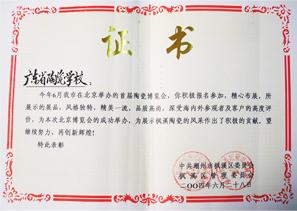 证 书
广东省陶瓷学校：
今年6月我市在北京举办的首届陶瓷博览会，你们积极报名参加，精心布展，所
展示的展品，风格独特，精美一流，品质高尚，深受海内外参观者及客户的高度评
价，为本次北京博览会的成功举办，为展示枫溪陶瓷的风采作出了积极的贡献。望
继续努力，再创新辉煌！
特此表彰
中共潮州市枫溪区委员会
枫溪区管理委员会
二〇〇四年六月二十八日